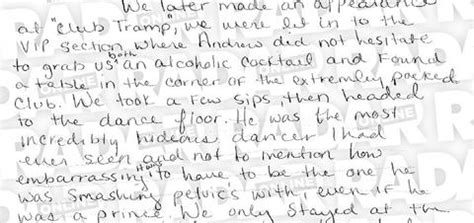 We later made an appearance
at "Club Tramp", we were let in to the
VIP section where Andrew did not hesitate
to grab us both an alcoholic cocktail and found
a table in the corner of the extremley packed
Club. We took a few sips, then headed
to the dance floor. He was the most
incredibly hideous dancer I had
ever seen and not to mention how
embarrassing it was to have to be the one he
was smashing pelvics with, even if he
was a prince. We only stayed at the
RADAR ONLINE